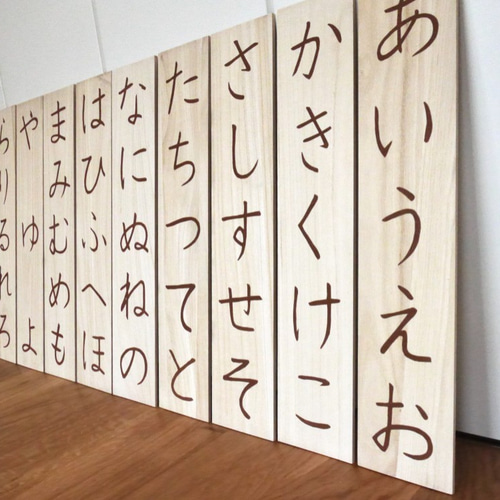 あいうえお
かきくけこ
さしすせそ
たちつてと
なにぬねの
はひふへほ
まみむめも
やゆよ
らりるれろ